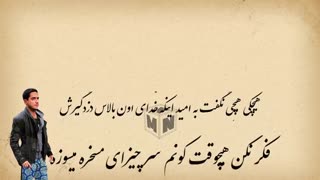 هیچکی هیچی نگفت به امید اینکه خدای اون بالاس دزدگیرش
فکر نکن هیچوقت کونم سر چیزای مسخره میسوزه